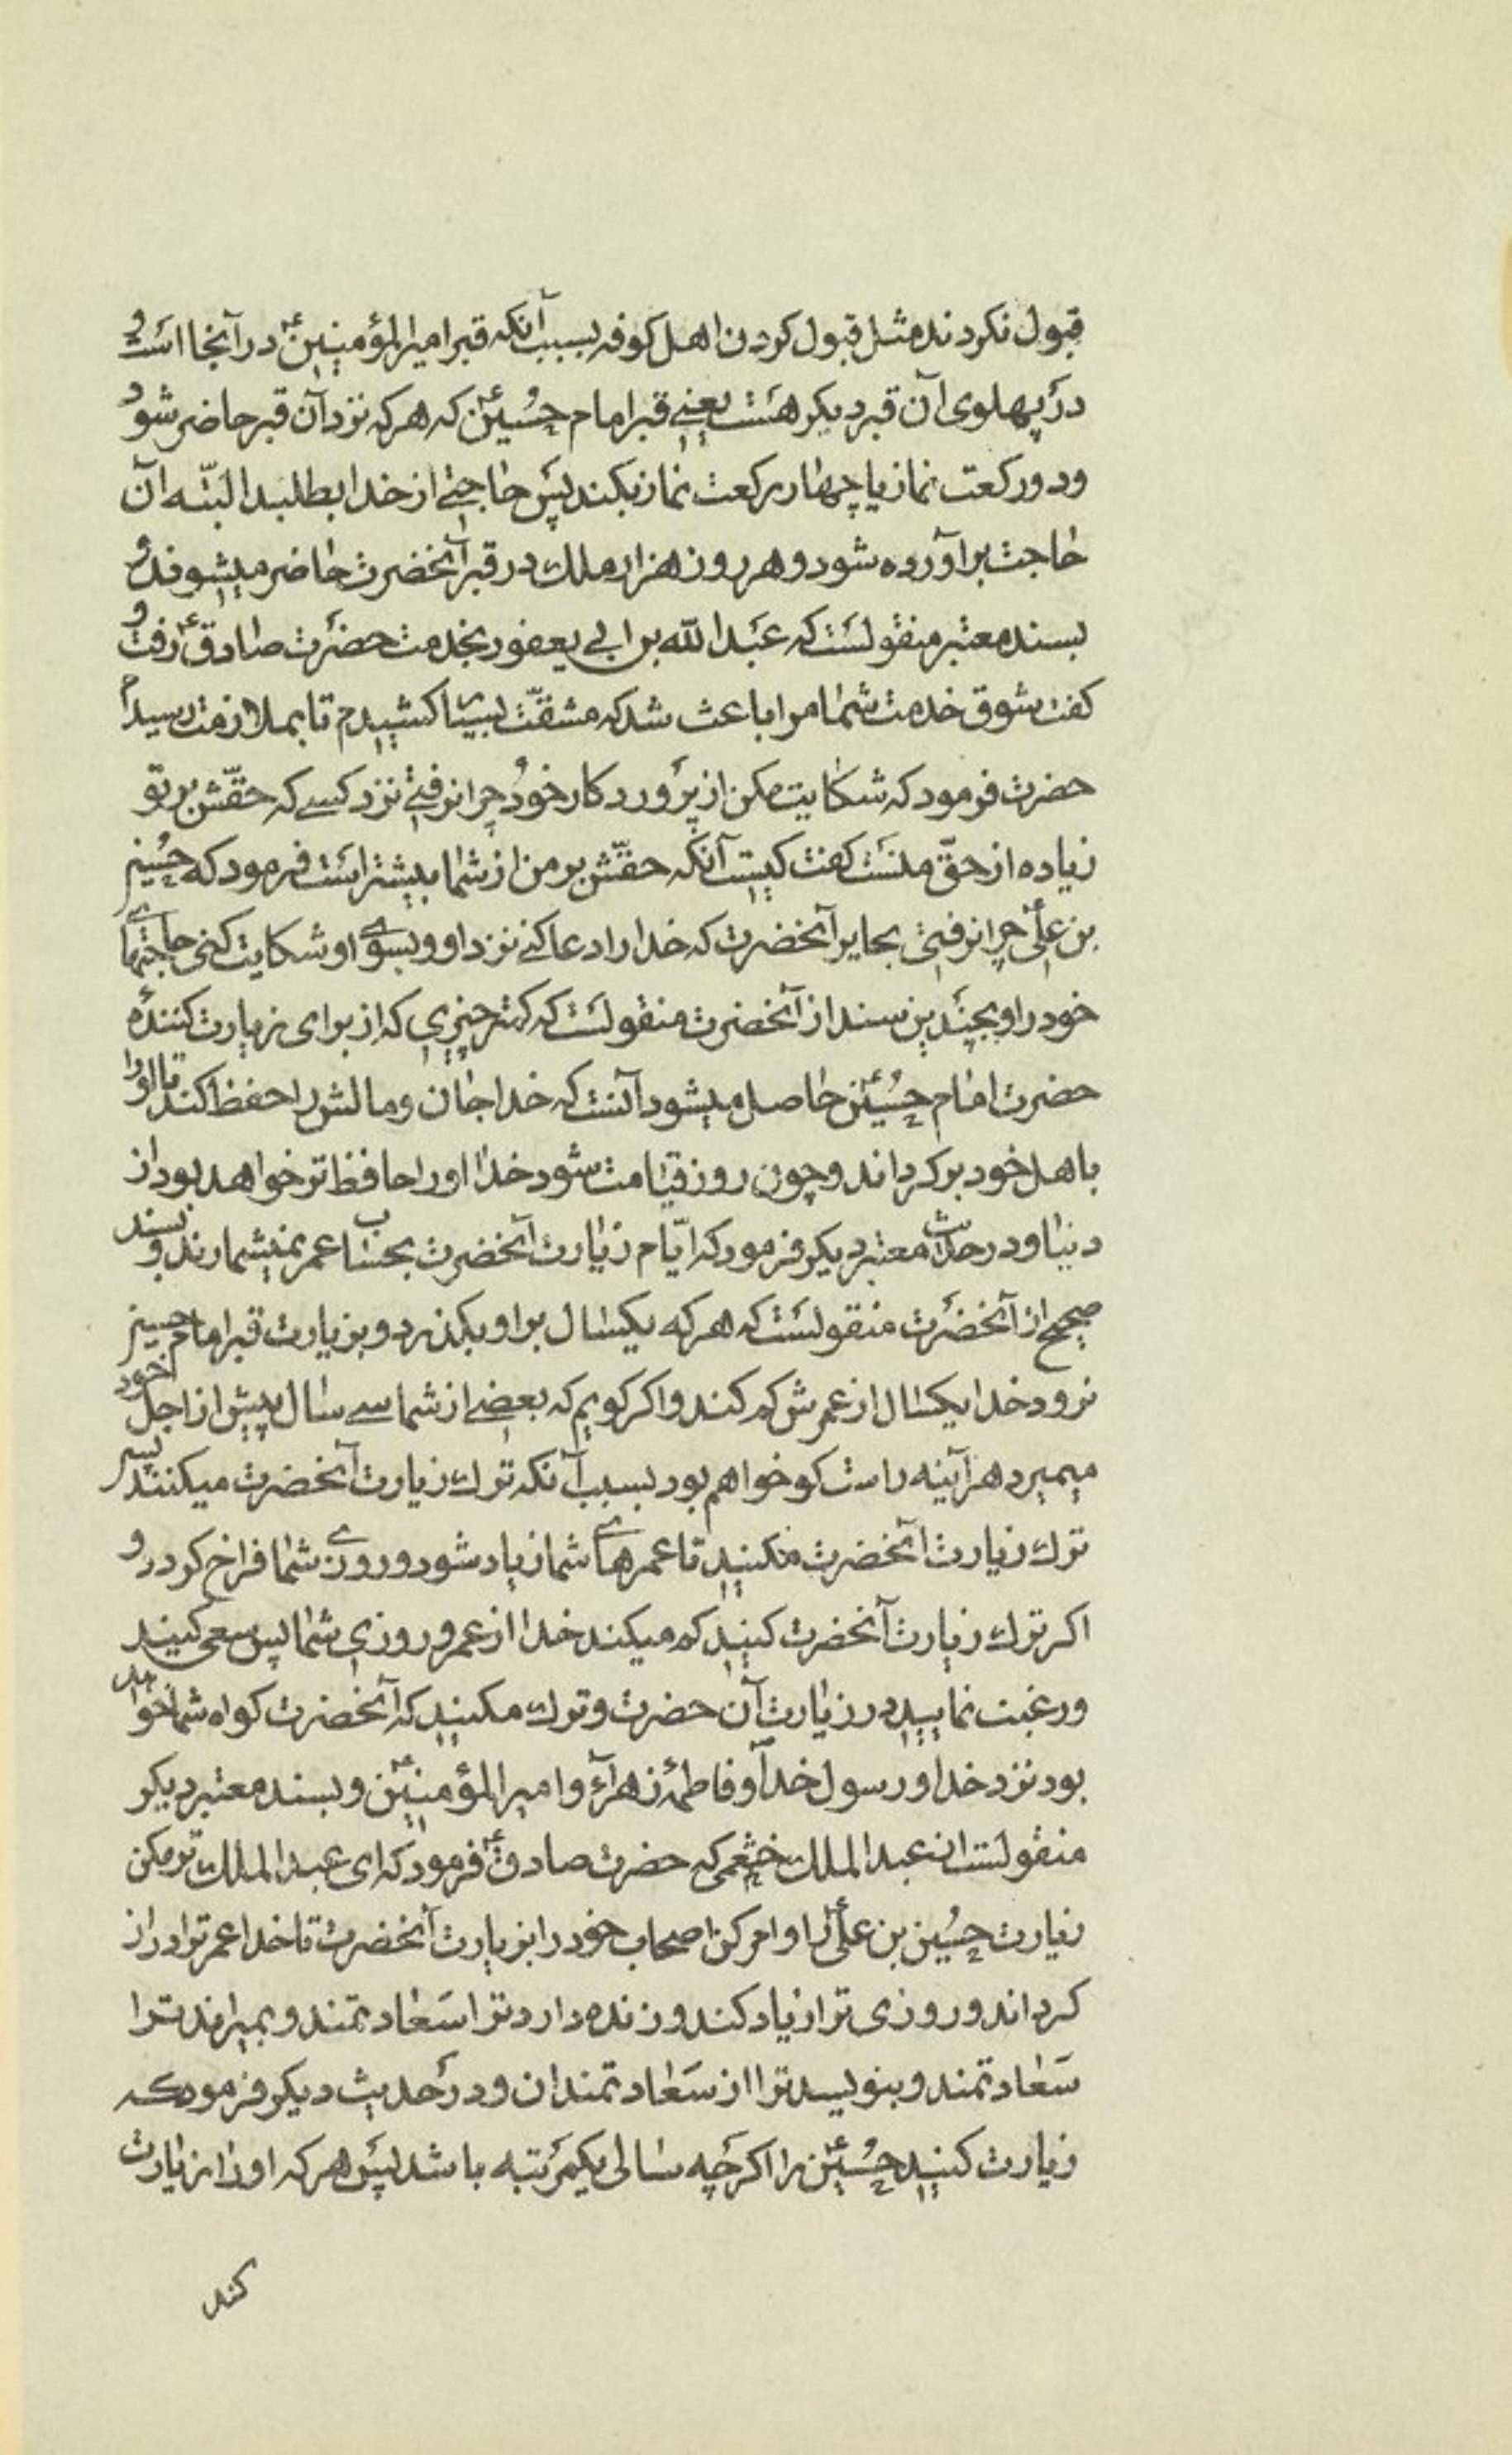 قبول نکردند مثل قبول کردن اهل کوفه بسبب آنکه قبر امیرالمؤمنینؑ در آنجا است و
در پهلوی آن قبر دیکر هست یعنے قبر امام حسینؑ که هر که نزد آن قبر حاضر شود
و دو رکعت نماز یا چهار رکعت نماز بکند پس حاجتے از خدا بطلبد البتّه آن
حاجت برآورده شود و هر روز هزار ملک در قبر آنحضرت حاضر میشوند و
بسند معتبر منقولست که عبدالله بن ابی یعفور بخدمت حضرت صادقؑ رفت و
کفت شوق خدمت شما مرا باعث شد که مشقّت بسیار کشیدم تا بملازمت رسیدم
حضرت فرمود که شکایت مکن از پروردکار خود چرا نرفتے نزد کسے که حقّش بر تو
زیاده از حقّ منست کفت کیست آنکه حقّش بر من از شما بیشتر است فرمود که حسین
بن علیؑ چرا نرفتی بحایر آنحضرت که خدا را دعا کنے نزد او و بسوے او شکایت کنی حاجتهاے
خود را و بچندین سند از آنحضرت منقولست که کمتر چیزی که از برای زیارت کنندهٔ
حضرت امام حسینؑ حاصل میشود آنست که خدا جان و مالش را حفظ کند تا او را
باهل خود برکرداند و چون روز قیامت شود خدا او را حافظ تر خواهد بود از
دنیا و در حدیث معتبر دیکر فرمود که ایّام زیارت آنحضرت بحساب عمر نمیشمارند و بسند
صحیح از آنحضرت منقولست که هر که یکسال بر او بکذرد و بزیارت قبر امام حسین
نرود خدا یکسال از عمرش کم کند و اکر کویم که بعضے از شما سے سال پیش از اجل خود
میمیرد هرآینه راست کو خواهم بود بسبب آنکه ترک زیارت آنحضرت میکنند پس
ترک زیارت آنحضرت مکنید تا عمرهاے شما زیاد شود و روزے شما فراخ کردد و
اکر ترک زیارت آنحضرت کنید کم میکند خدا از عمر و روزی شما پس سعی کنید
و رغبت نمایید در زیارت آن حضرت و ترک مکنید که آنحضرت کواه شما خواهد
بود نزد خدا و رسول خداؐ و فاطمهٔ زهرآءؑ و امیرالمؤمنینؑ و بسند معتبر دیکر
منقولست از عبدالملک خثعمی که حضرت صادقؑ فرمود که ای عبدالملک ترک مکن
زیارت حسین بن علیؑ را و امر کن اصحاب خود را بزیارت آنحضرت تا خدا عمر ترا دراز
کرداند و روزی ترا زیاد کند و زنده دارد ترا سعادتمند و بمیراند ترا
سعادتمند و بنویسد ترا از سعادتمندان و در حدیث دیکر فرمود که
زیارت کنید حسینؑ را اکرچه سالی یکمرتبه باشد پس هر که او را زیارت
کند